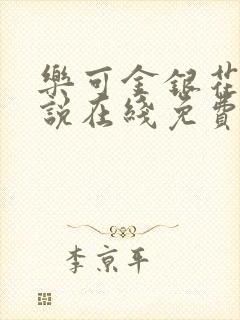 樂可金銀花
說在綫免費
李京平